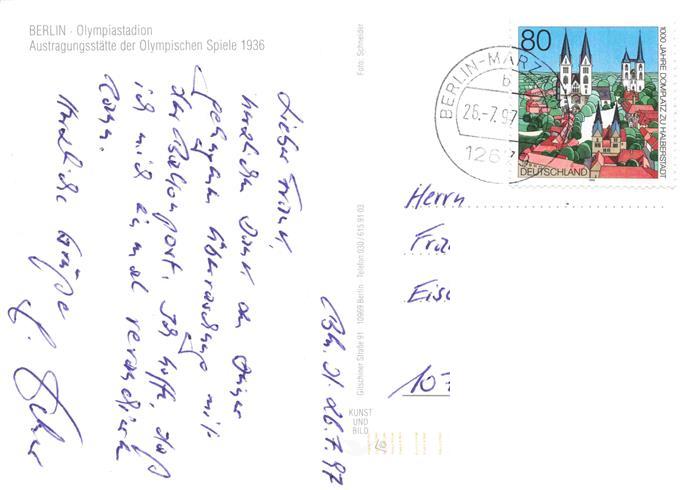 BERLIN · Olympiastadion
Austragungsstätte der Olympischen Spiele 1936
Foto: Schneider
Gitschiner Straße 91 · 10969 Berlin · Telefon 030 / 615 91 03
KUNST
UND
BILD
80
1000 JAHRE DOMPLATZ ZU HALBERSTADT
DEUTSCHLAND
BERLIN-MARZ
b
26.-7.97
1267
Bln. 26.7.97
Lieber Frank,
herzlichen Dank an Deiner
gelungenen Überraschung mit
der Ballonpost. Ich hoffe, daß
ich mich einmal revanchieren
kann.
Herzliche Grüße
Herrn
Fra
Eis
107